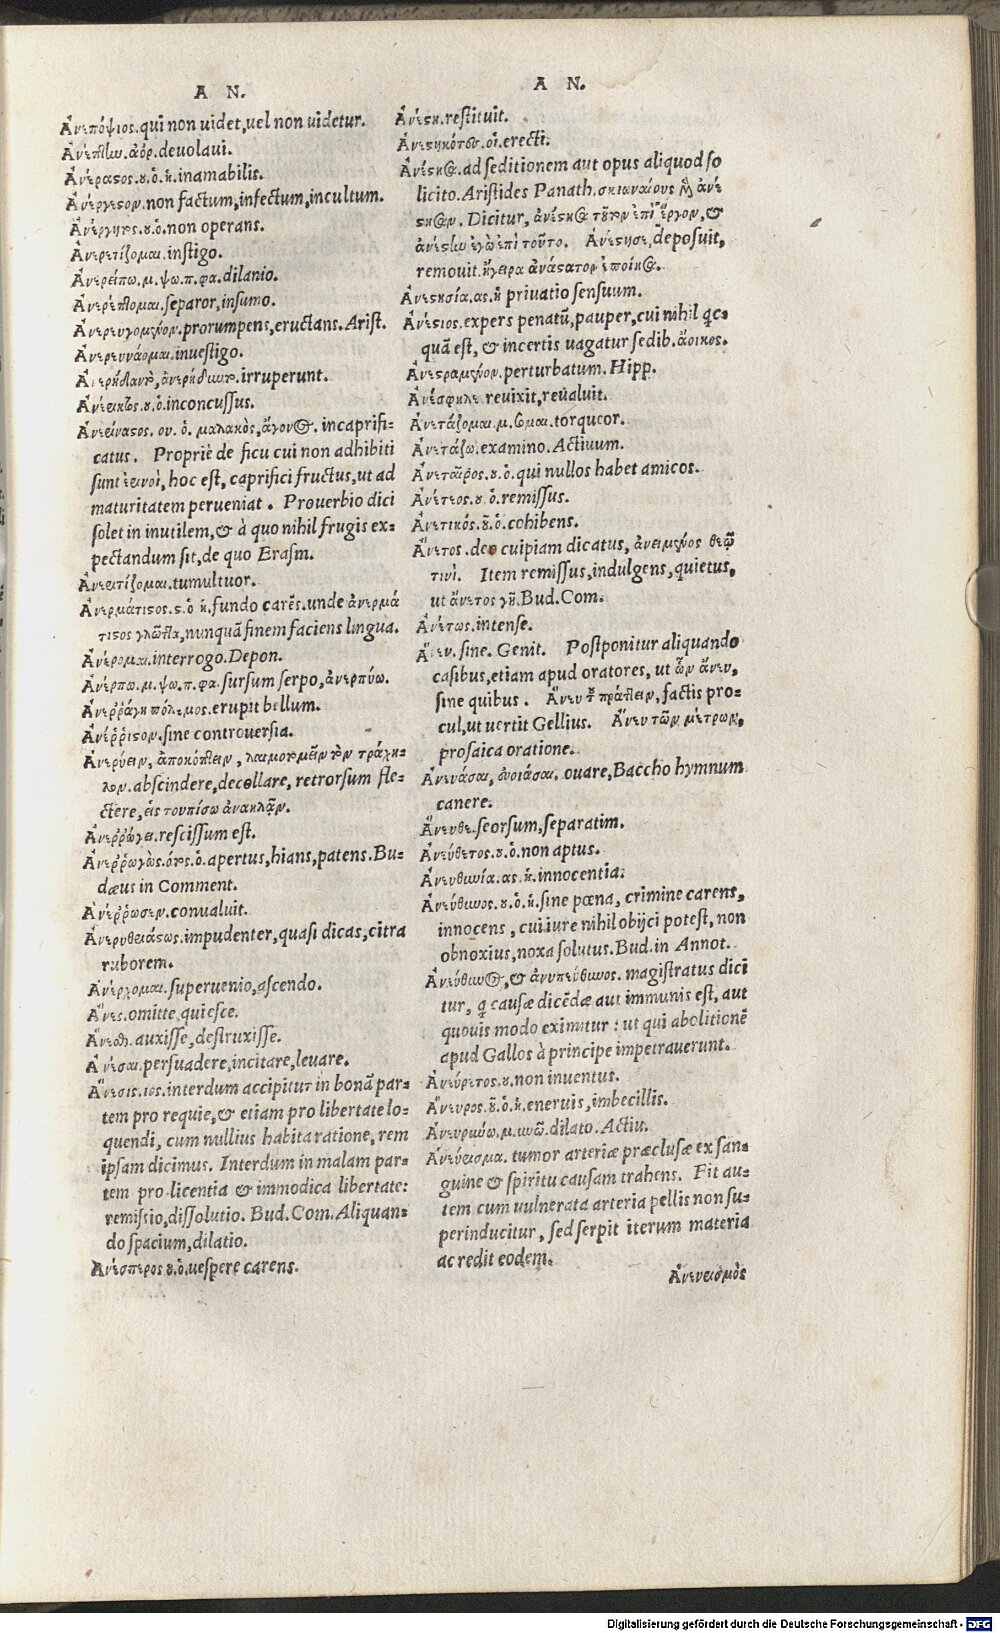 A N.
Ἀνεπόψιος. qui non uidet, uel non uidetur.
Ἀνέπτlω. ἀόρ. deuolaui.
Ἀνέραςος. ȣ. ὁ. ἡ. inamabilis.
Ἀνέργεςον. non factum, infectum, incultum.
Ἀνέργητος. ȣ. ὁ. non operans.
Ἀνερετίζομαι. instigo.
Ἀνερείπω. μ. ψω. π. φα. dilanio.
Ἀνερέπτομαι. separor, insumo.
Ἀνερευγομένον. prorumpens, eructans. Arist.
Ἀνερευνάομαι. inuestigo.
irruperunt.
ȣ. ὁ. inconcussus.
Ἀνερίναςος. ου. ὁ. μαλακὸς, ἄγονος. incaprifi-
catus. Propriè de ficu cui non adhibiti
sunt ἐρινοὶ, hoc est, caprifici fructus, ut ad
maturitatem perueniat. Prouerbio dici
solet in inutilem, & à quo nihil frugis ex-
pectandum sit, de quo Erasm.
tumultuor.
Ἀνερμάτιςος. ȣ. ὁ ἡ. fundo carẽs. unde ἀνερμά
τιςος γλῶττα, nunquã finem faciens lingua.
Ἀνέρομαι. interrogo. Depon.
Ἀνέρπω. μ. ψω. π. φα. sursum serpo, ἀνερπύω.
Ἀνεῤῥάγη πόλεμος. erupit bellum.
Ἀνέῤῥιςον. sine controuersia.
Ἀνερύειν, ἀποκόπτειν, λαιμοτομεῖν τὸν τράχη-
λον. abscindere, decollare, retrorsum fle-
ctere, εἰς τουπίσω ἀνακλᾷν.
Ἀνεῤῥώγει. rescissum est.
Ἀνεῤῥωγὼς. ότος. ὁ. apertus, hians, patens. Bu-
dæus in Comment.
Ἀνέῤῥωσεν. conualuit.
Ἀνερυθειάςως. impudenter, quasi dicas, citra
ruborem.
Ἀνέρχομαι. superuenio, ascendo.
Ἄνες. omitte, quiesce.
auxisse, destruxisse.
Ἀνέσαι. persuadere, incitare, leuare.
Ἄνεσις. ιος. interdum accipitur in bonã par-
tem pro requie, & etiam pro libertate lo-
quendi, cum nullius habita ratione, rem
ipsam dicimus. Interdum in malam par-
tem pro licentia & immodica libertate:
remissio, dissolutio. Bud. Com. Aliquan-
do spacium, dilatio.
Ἀνέσπερος ȣ. ὁ. uespere carens.
A N.
Ἀνέςη. restituit.
Ἀνεςηκότες. οἱ. erecti.
Ἀνέςησε. ad seditionem aut opus aliquod so
licito. Aristides Panath. σκιωναίους ἀνέ
ςησεν. Dicitur, ἀνέςησε τοῦτον ἐπὶ ἔργον, &
ἀνέςlω ἐγὼ ἐπὶ τοῦτο. Ἀνέςησε, deposuit,
remouit. ἤγειρα ἀνάςατον ἐποίησε.
Ἀνεςησία. ας. ἡ priuatio sensuum.
Ἀνέςιος. expers penatũ, pauper, cui nihil qc-
quã est, & incertis uagatur sedib. ἄοικος.
Ἀνεςραμένον. perturbatum. Hipp.
Ἀνέσφηλε. reuixit, reualuit.
Ἀνετάζομαι. μ. σομαι. torqueor.
Ἀνετάζω. examino. Actiuum.
Ἀνεταῖρος. ȣ. ὁ. qui nullos habet amicos.
Ἀνέτεος. ȣ. ὁ. remissus.
Ἀνετικός. ȣ̃. ὁ. cohibens.
Ἄνετος. deo cuipiam dicatus, ἀνειμένος θεῷ
τινὶ. Item remissus, indulgens, quietus,
ut ἄνετος γῆ. Bud. Com.
Ἀνέτως. intense.
Ἄνευ. sine. Genit. Postponitur aliquando
casibus, etiam apud oratores, ut ὧν ἄνευ,
sine quibus. Ἄνευ τȣ̃ πράττειν, factis pro-
cul, ut uertit Gellius. Ἄνευ τῶν μέτρων,
prosaica oratione.
Ἀνευάσαι, ἀνοιάσαι. ouare, Baccho hymnum
canere.
Ἄνευθε. seorsum, separatim.
Ἀνεύθετος. ȣ. ὁ. non aptus.
Ἀνευθυνία. ας. ἡ. innocentia.
Ἀνεύθυνος. ȣ. ὁ. ἡ. sine pœna, crimine carens,
innocens, cui iure nihil obijci potest, non
obnoxius, noxa solutus. Bud. in Annot.
Ἀνεύθυνος, & ἀνυπεύθυνος. magistratus dici
tur, q causæ dicẽdæ aut immunis est, aut
quouis modo eximitur: ut qui abolitionẽ
apud Gallos à principe impetrauerunt.
Ἀνεύρετος. ȣ. non inuentus.
Ἄνευρος. ȣ̃. ὁ. ἡ. eneruis, imbecillis.
Ἀνευρύνω. μ. υνῶ. dilato. Actiu.
Ἀνεύρισμα. tumor arteriæ præclusæ ex san-
guine & spiritu causam trahens. Fit au-
tem cum uulnerata arteria pellis non su-
perinducitur, sed serpit iterum materia
ac redit eodem.
Ἀνευρισμὸς
Digitalisierung gefördert durch die Deutsche Forschungsgemeinschaft - DFG